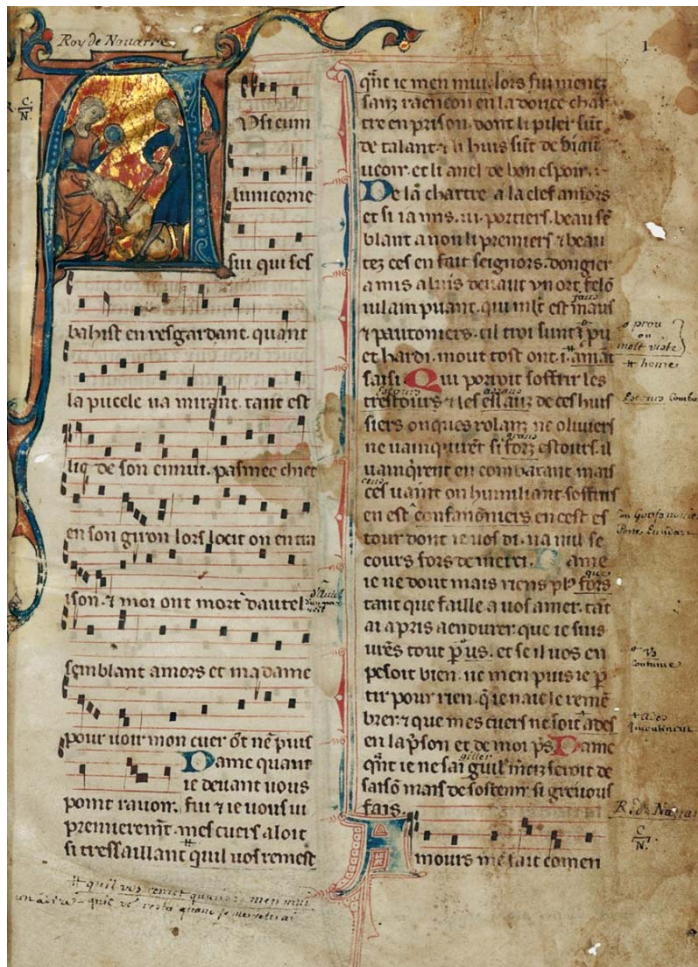 Roy de Nouarre
1.
C.
N.
Ausi cum
lunicorne
sui qui ses
bahist en resgardant. quant
la pucele ua mirant. tant est
lie de son ennui. pasmee chiet
en son giron lors locit on en tra
ison. & moi ont mort dautel
semblant amors et ma dame
pour uoir mon cuer nen puis
Dame quant
ie deuant uous
point rauoir. fui & ie uous ui
premierement. mes cuers aloit
si tressaillant quil uos remest
qñt ie men mui. lors fui menez
sanz raencon en la douce char
tre en prison. dont li piler sūt
de talant & li huis sūt de biau
ueoir. et li anel de bon espoir.
De la chartre a la clef amors
et si ia mis .iii. portiers. beau sē
blant a non li premiers & beau
tez ces en fait seignors. dongier
a mis a luis deuant
uilain puant. qui mlt est maus
& pautoniers. cil troi sunt
et hardi. mout tost ont .i. amāt
saisi. Qui porroit soffrir les
trestours & les de ces huis
siers onques rolanz ne oliuiers
ne uainquirēt si forz estours. il
uainqirent en combatant mais
ces uaint on humiliant soffrirs
en est confanoniers en cest es
tour dont ie uos di. na nul se
cours fors de merci. Dame
ie ne dout mais riens pl⁹ fors
tant que faille a uos amer. tāt
ai apris a endurer que ie suis
urēs tout et se il uos en
pesoit bien. ne men puis ie p
tir pour rien. q̄ ie naie le remē
brer. & que mes cuers ne soit ades
en la pson et de moi Dame
qñt ie ne sai guil. merz seroit de
saisō mais de sostenir si greuous
fais.
Amours me fait comen
prou
ou
molt viste
home
Coutume
R. de Nauar
C
N.
quil vos remest quant ie men mui